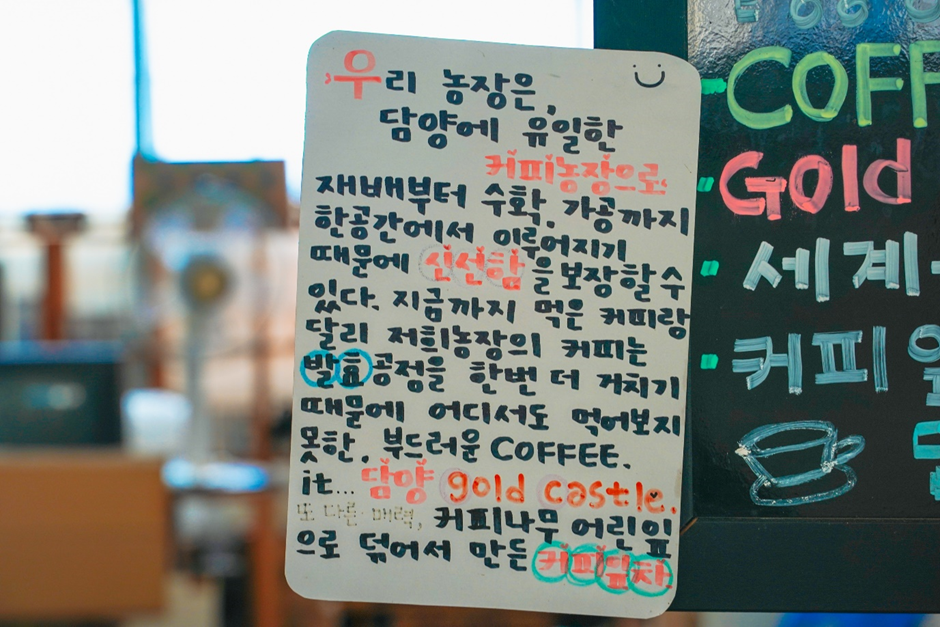 우리 농장은,
담양에 유일한
커피농장으로
재배부터 수확. 가공까지
한공간에서 이루어지기
때문에 신선함을 보장할수
있다. 지금까지 먹은 커피랑
달리 저희농장의 커피는
발효공정을 한번 더 거치기
때문에 어디서도 먹어보지
못한. 부드러운 COFFEE.
it... 담양 gold castle.
또 다른 매력, 커피나무 어린잎
으로 덖어서 만든 커피잎차
COFF
Gold
세계
커피